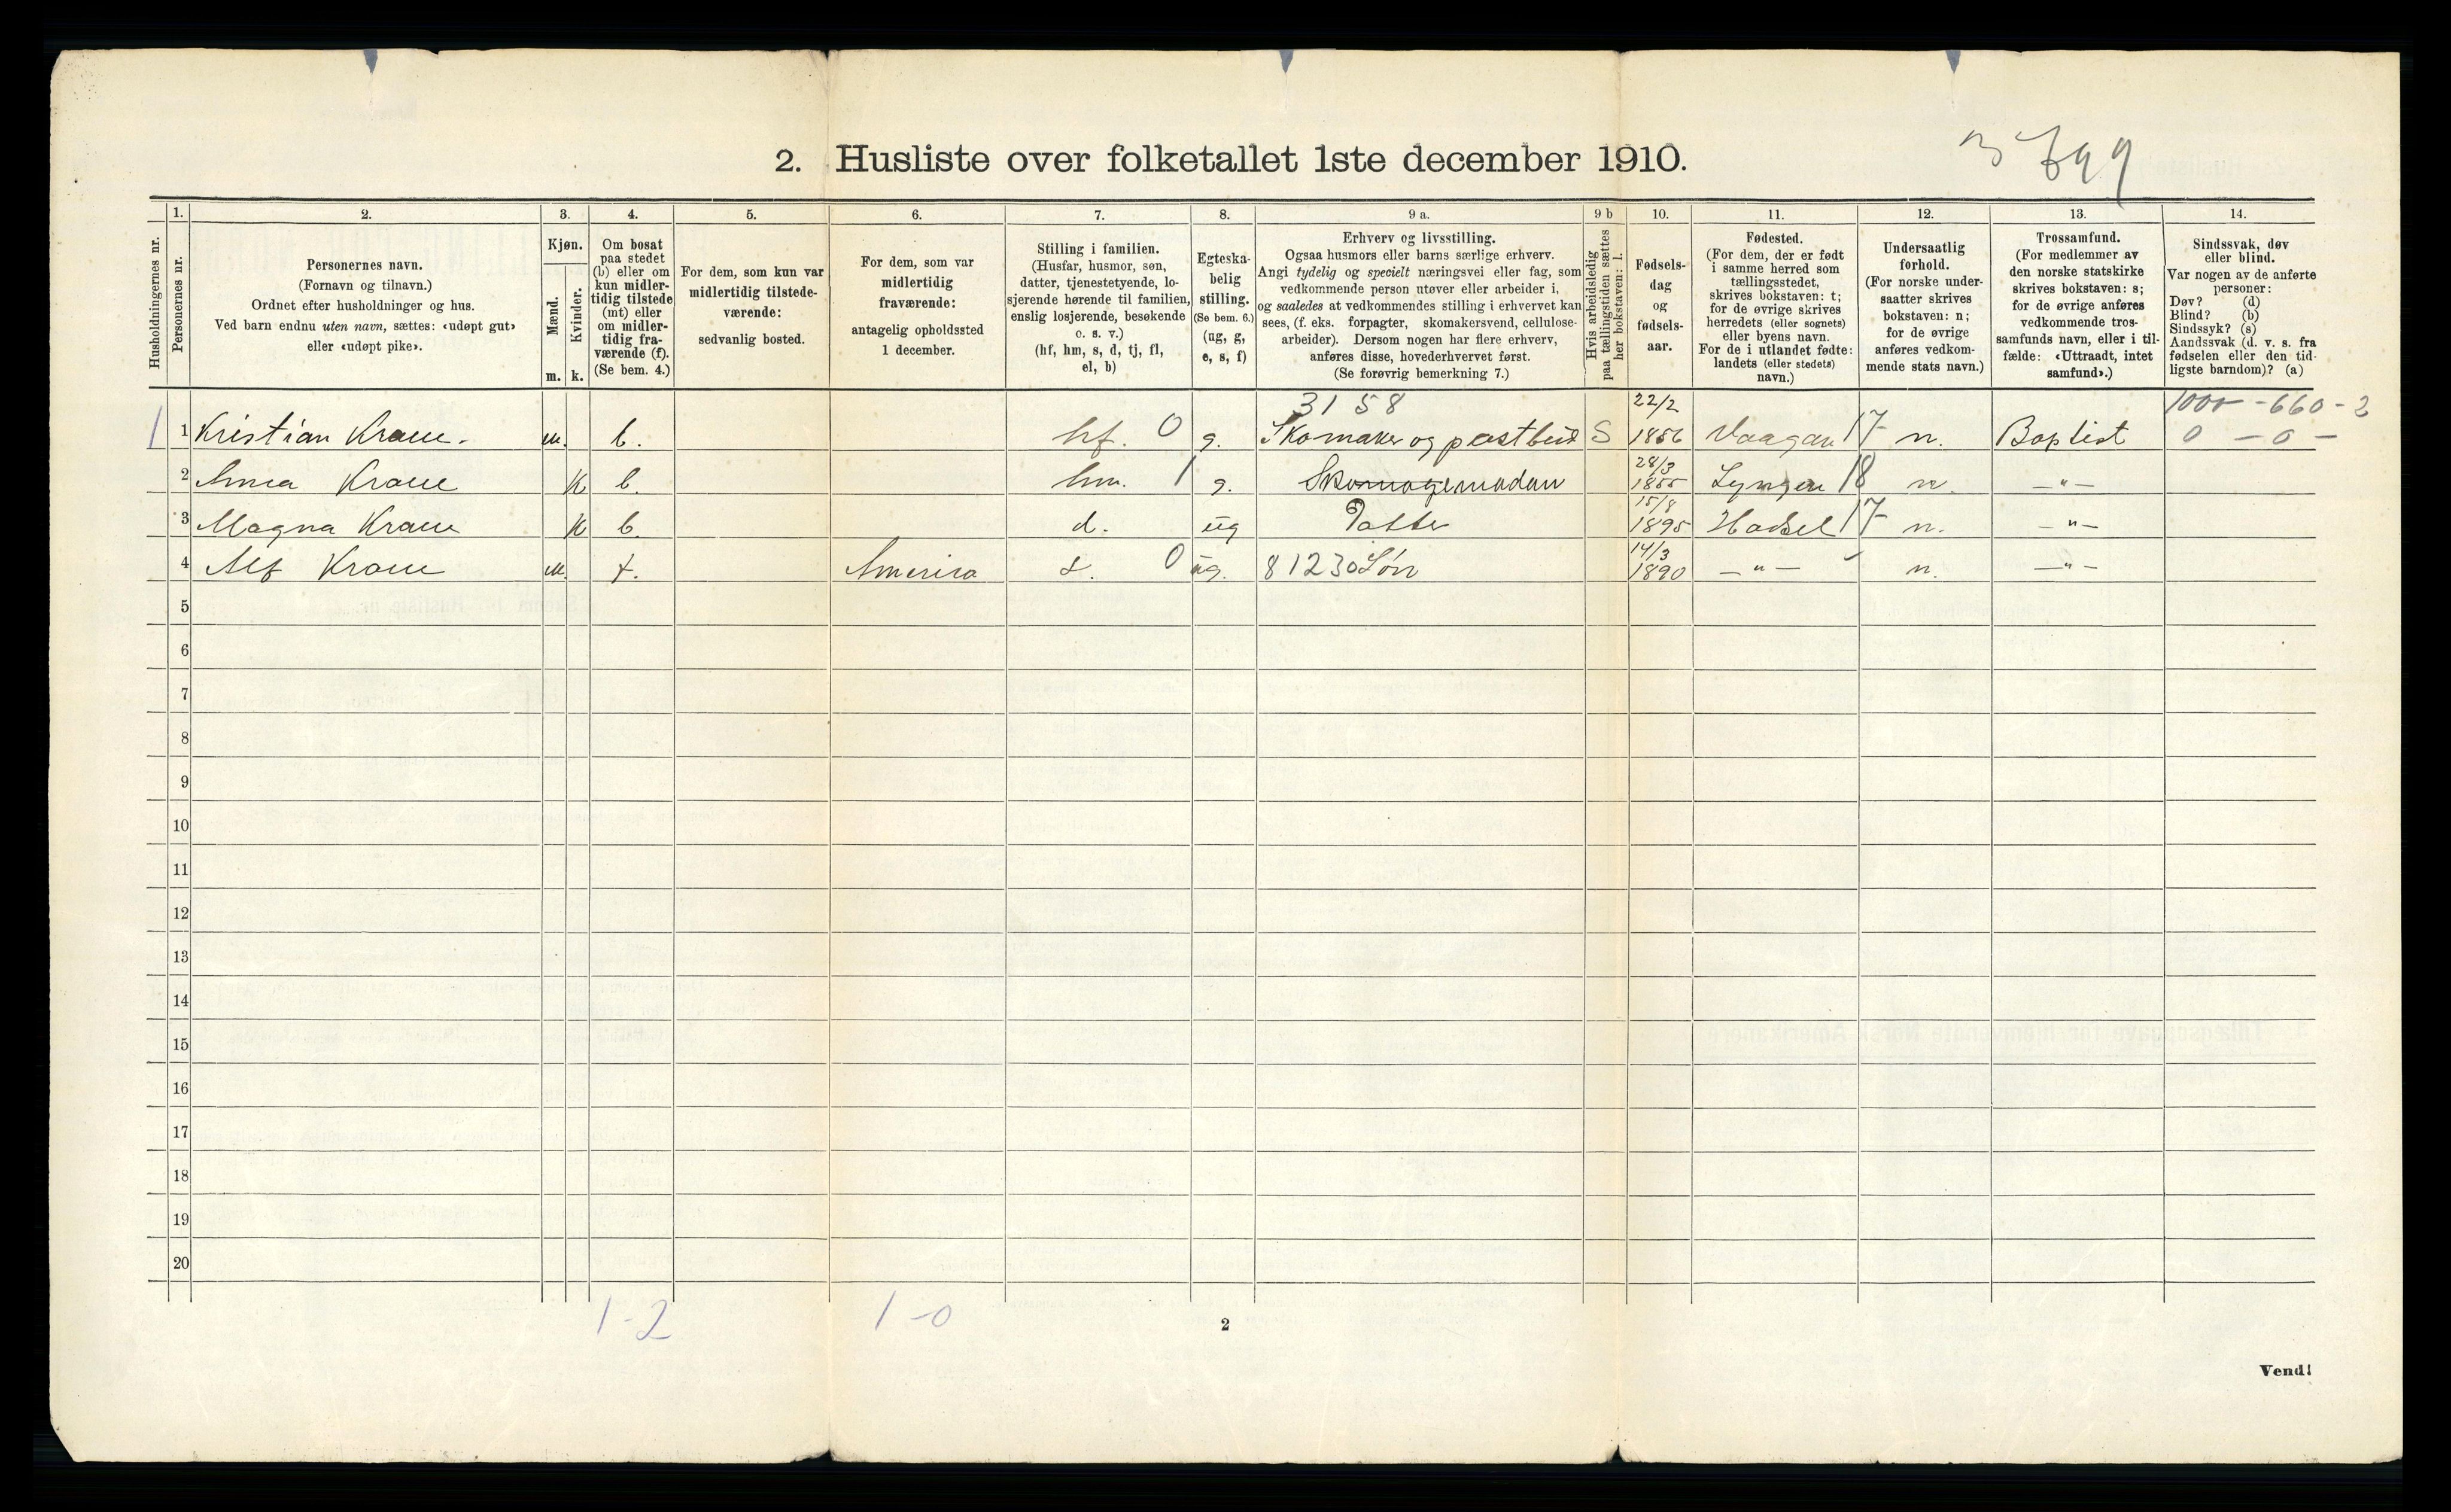 2. Husliste over folketallet 1ste december 1910.
Husholdningernes nr.
1.
Personernes nr.
2.
Personernes navn.
(Fornavn og tilnavn.)
Ordnet efter husholdninger og hus.
Ved barn endnu uten navn, sættes: «udøpt gut»
eller «udøpt pike».
3.
Kjøn.
Mænd.
Kvinder.
m. k.
4.
Om bosat
paa stedet
(b) eller om
kun midler-
tidig tilstede
(mt) eller
om midler-
tidig fra-
værende (f).
(Se bem. 4.)
5.
For dem, som kun var
midlertidig tilstede-
værende:
sedvanlig bosted.
6.
For dem, som var
midlertidig
fraværende:
antagelig opholdssted
1 december.
7.
Stilling i familien.
(Husfar, husmor, søn,
datter, tjenestetyende, lo-
sjerende hørende til familien,
enslig losjerende, besøkende
o. s. v.)
(hf, hm, s, d, tj, fl,
el, b)
8.
Egteska-
belig
stilling.
(Se bem. 6.)
(ug, g,
e, s, f)
9 a.
Erhverv og livsstilling.
Ogsaa husmors eller barns særlige erhverv.
Angi tydelig og specielt næringsvei eller fag, som
vedkommende person utøver eller arbeider i,
og saaledes at vedkommendes stilling i erhvervet kan
sees, (f. eks. forpagter, skomakersvend, cellulose-
arbeider). Dersom nogen har flere erhverv,
anføres disse, hovederhvervet først.
(Se forøvrig bemerkning 7.)
9 b
Hvis arbeidsledig
paa tællingstiden sættes
her bokstaven: l.
10.
Fødsels-
dag
og
fødsels-
aar.
11.
Fødested.
(For dem, der er født
i samme herred som
tællingsstedet,
skrives bokstaven: t;
for de øvrige skrives
herredets (eller sognets)
eller byens navn.
For de i utlandet fødte:
landets (eller stedets)
navn.)
12.
Undersaatlig
forhold.
(For norske under-
saatter skrives
bokstaven: n;
for de øvrige
anføres vedkom-
mende stats navn.)
13.
Trossamfund.
(For medlemmer av
den norske statskirke
skrives bokstaven: s;
for de øvrige anføres
vedkommende tros-
samfunds navn, eller i til-
fælde: «Uttraadt, intet
samfund».)
14.
Sindssvak, døv
eller blind.
Var nogen av de anførte
personer:
Døv? (d)
Blind? (b)
Sindssyk? (s)
Aandssvak (d. v. s. fra
fødselen eller den tid-
ligste barndom)? (a)
3158 22/2 - 660 - 2
1 1 Kristian Krane. m. b. hf. 0 g. Skomaker og postbud S 1856 Vaagan 17 n. Baptist 0 - 0 -
28/3
2 Anna Krane K b. hm. 1 g. Skomagemadam 1855 Lyngen 18 n. —"—
15/8
3 Magna Krane K b. d. ug Datter 1895 Hadsel 17 n. —"—
14/3
4 Alf Krane M. f. Amerika s. 0 ug. 81230 Søn 1890 —"— n. —"—
5
6
7
8
9
10
11
12
13
14
15
16
17
18
19
20
1-2 1-0
2
Vend!